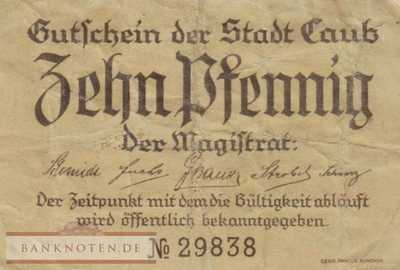 Gutschein der Stadt Caub
Zehn Pfennig
Der Magistrat:
Der Zeitpunkt mit dem die Gültigkeit abläuft
wird öffentlich bekanntgegeben.
BANKNOTEN.DE
№ 29838